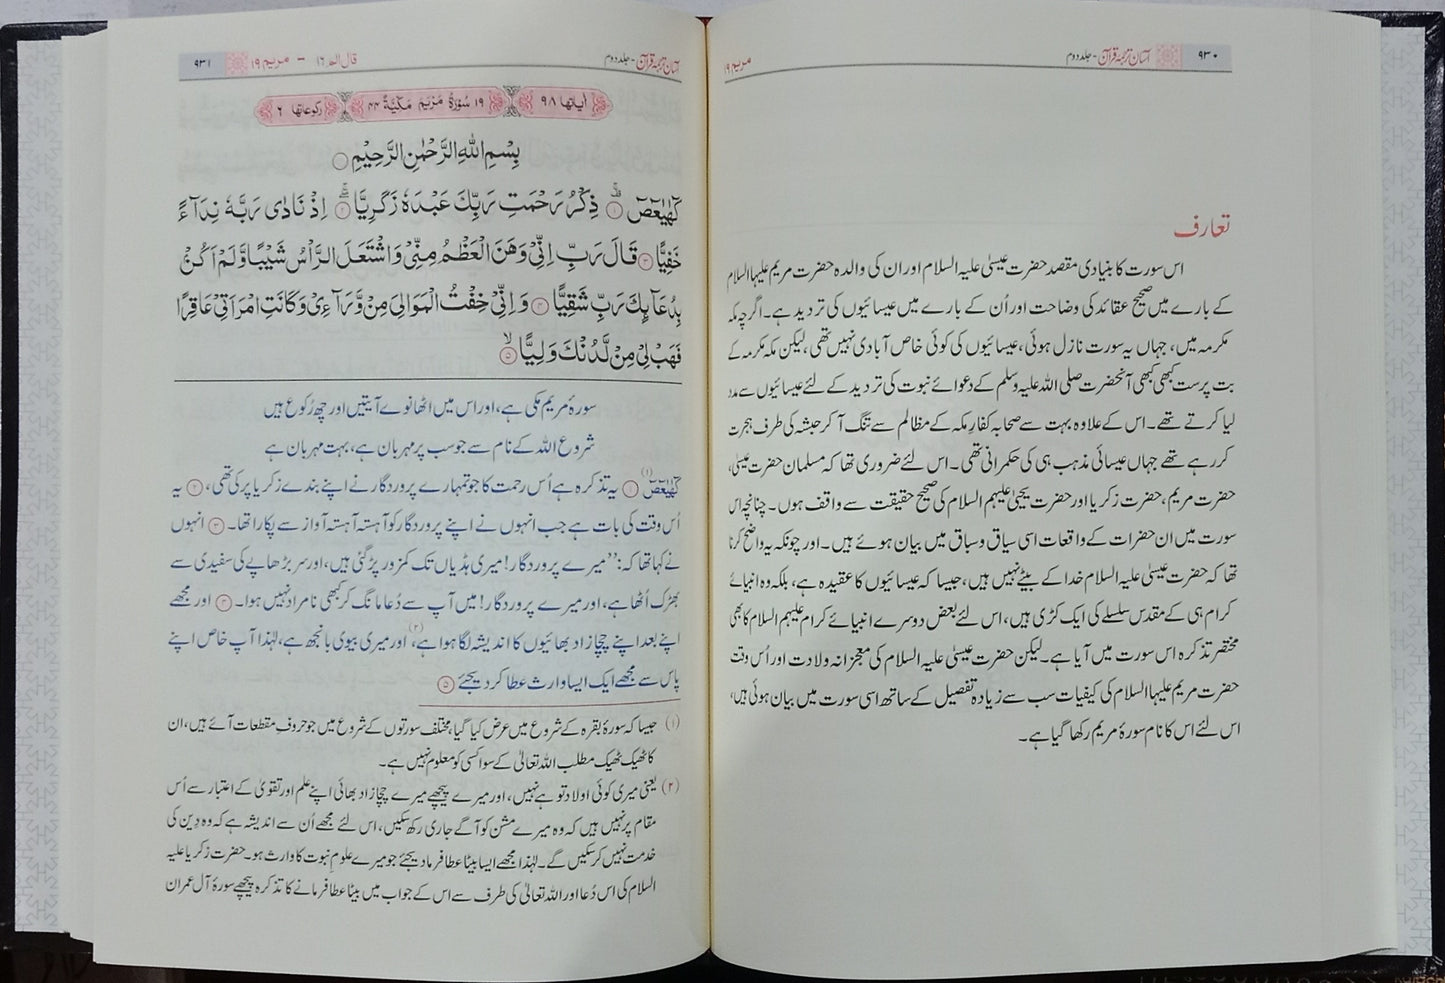 ۹۳۰ آسان ترجمۂ قرآن - جلد دوم مریم ۱۹
تعارف
اس سورت کا بنیادی مقصد حضرت عیسیٰ علیہ السلام اور ان کی والدہ حضرت مریم علیہا السلام
کے بارے میں صحیح عقائد کی وضاحت اور اُن کے بارے میں عیسائیوں کی تردید ہے۔ اگرچہ مکہ
مکرمہ میں، جہاں یہ سورت نازل ہوئی، عیسائیوں کی کوئی خاص آبادی نہیں تھی، لیکن مکہ مکرمہ کے
بت پرست کبھی کبھی آنحضرت صلی اللہ علیہ وسلم کے دعوائے نبوت کی تردید کے لئے عیسائیوں سے مدد
لیا کرتے تھے۔ اس کے علاوہ بہت سے صحابہ کفارِ مکہ کے مظالم سے تنگ آ کر حبشہ کی طرف ہجرت
کر رہے تھے جہاں عیسائی مذہب ہی کی حکمرانی تھی۔ اس لئے ضروری تھا کہ مسلمان حضرت عیسیٰ،
حضرت مریم، حضرت زکریا اور حضرت یحییٰ علیہم السلام کی صحیح حقیقت سے واقف ہوں۔ چنانچہ اس
سورت میں ان حضرات کے واقعات اسی سیاق و سباق میں بیان ہوئے ہیں۔ اور چونکہ یہ واضح کرنا
تھا کہ حضرت عیسیٰ علیہ السلام خدا کے بیٹے نہیں ہیں، جیسا کہ عیسائیوں کا عقیدہ ہے، بلکہ وہ انبیائے
کرام ہی کے مقدس سلسلے کی ایک کڑی ہیں، اس لئے بعض دوسرے انبیائے کرام علیہم السلام کا بھی
مختصر تذکرہ اس سورت میں آیا ہے۔ لیکن حضرت عیسیٰ علیہ السلام کی معجزانہ ولادت اور اُس وقت
حضرت مریم علیہا السلام کی کیفیات سب سے زیادہ تفصیل کے ساتھ اسی سورت میں بیان ہوئی ہیں،
اس لئے اس کا نام سورۂ مریم رکھا گیا ہے۔
آسان ترجمۂ قرآن - جلد دوم قال الم ۱۶ - مریم ۱۹ ۹۳۱
اٰیاتھا ۹۸ ۱۹ سُوْرَةُ مَرْیَمَ مَکِّیَّةٌ ۴۴ رکوعاتھا ۶
بِسْمِ اللّٰهِ الرَّحْمٰنِ الرَّحِيْمِ
كٓهٰيٰعٓصٓ ۱ ذِكْرُ رَحْمَتِ رَبِّكَ عَبْدَهٗ زَكَرِيَّا ۲ اِذْ نَادٰى رَبَّهٗ نِدَآءً
خَفِيًّا ۳ قَالَ رَبِّ اِنِّيْ وَهَنَ الْعَظْمُ مِنِّيْ وَاشْتَعَلَ الرَّاْسُ شَيْبًا وَّلَمْ اَكُنْۢ
بِدُعَآىِٕكَ رَبِّ شَقِيًّا ۴ وَاِنِّيْ خِفْتُ الْمَوَالِيَ مِنْ وَّرَآءِيْ وَكَانَتِ امْرَاَتِيْ عَاقِرًا
فَهَبْ لِيْ مِنْ لَّدُنْكَ وَلِيًّا ۵
سورۂ مریم مکی ہے، اور اس میں اٹھانوے آیتیں اور چھ رُکوع ہیں
شروع اللہ کے نام سے جو سب پر مہربان ہے، بہت مہربان ہے
كٓهٰيٰعٓصٓ (۱) ۱ یہ تذکرہ ہے اُس رحمت کا جو تمہارے پروردگار نے اپنے بندے زکریا پر کی تھی، ۲ یہ
اُس وقت کی بات ہے جب انہوں نے اپنے پروردگار کو آہستہ آہستہ آواز سے پکارا تھا۔ ۳ انہوں
نے کہا تھا کہ: ’’میرے پروردگار! میری ہڈیاں تک کمزور پڑ گئی ہیں، اور سر بڑھاپے کی سفیدی سے
بھڑک اُٹھا ہے، اور میرے پروردگار! میں آپ سے دُعا مانگ کر کبھی نامراد نہیں ہوا۔ ۴ اور مجھے
اپنے بعد اپنے چچازاد بھائیوں کا اندیشہ لگا ہوا ہے، (۲) اور میری بیوی بانجھ ہے، لہٰذا آپ خاص اپنے
پاس سے مجھے ایک ایسا وارث عطا کر دیجئے ۵
(۱) جیسا کہ سورۂ بقرہ کے شروع میں عرض کیا گیا، مختلف سورتوں کے شروع میں جو حروفِ مقطعات آئے ہیں، ان
کا ٹھیک ٹھیک مطلب اللہ تعالیٰ کے سوا کسی کو معلوم نہیں ہے۔
(۲) یعنی میری کوئی اولاد تو ہے نہیں، اور میرے پیچھے میرے چچازاد بھائی اپنے علم اور تقویٰ کے اعتبار سے اُس
مقام پر نہیں ہیں کہ وہ میرے مشن کو آگے جاری رکھ سکیں، اس لئے مجھے اُن سے اندیشہ ہے کہ وہ دِین کی
خدمت نہیں کر سکیں گے۔ لہٰذا مجھے ایسا بیٹا عطا فرما دیجئے جو میرے علومِ نبوت کا وارث ہو۔ حضرت زکریا علیہ
السلام کی اس دُعا اور اللہ تعالیٰ کی طرف سے اس کے جواب میں بیٹا عطا فرمانے کا تذکرہ پیچھے سورۂ آل عمران